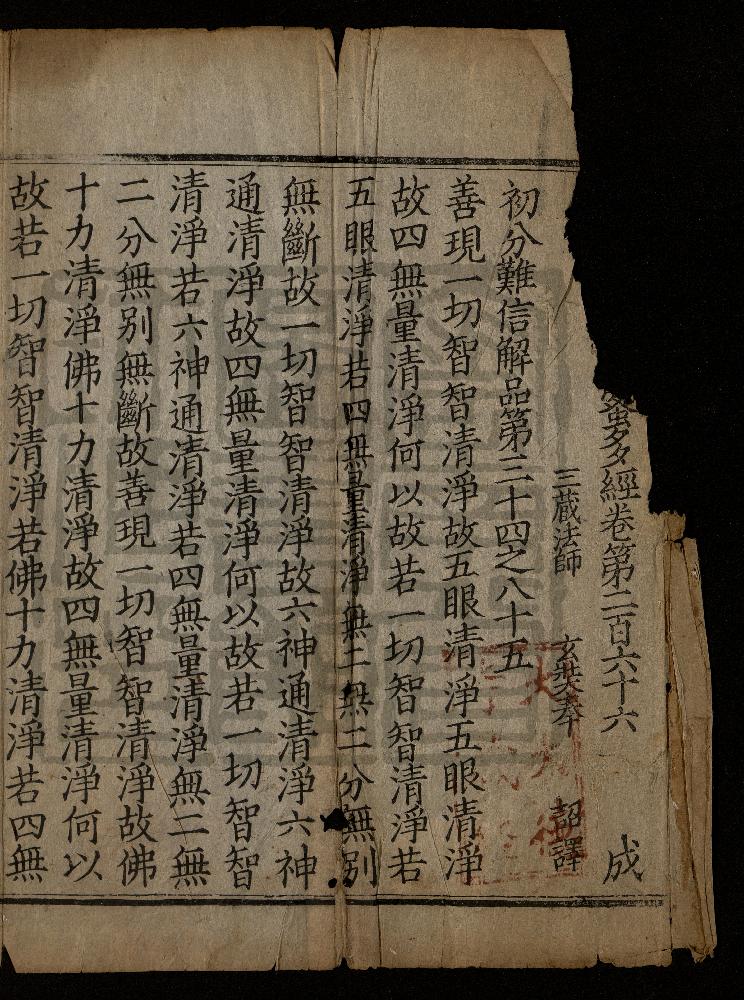 蜜多經卷第二百六十六 成
三藏法師 玄奘奉 詔譯
初分難信解品第三十四之八十五
善現一切智智清淨故五眼清淨五眼清淨
故四無量清淨何以故若一切智智清淨若
五眼清淨若四無量清淨無二無二分無別
無斷故一切智智清淨故六神通清淨六神
通清淨故四無量清淨何以故若一切智智
清淨若六神通清淨若四無量清淨無二無
二分無別無斷故善現一切智智清淨故佛
十力清淨佛十力清淨故四無量清淨何以
故若一切智智清淨若佛十力清淨若四無